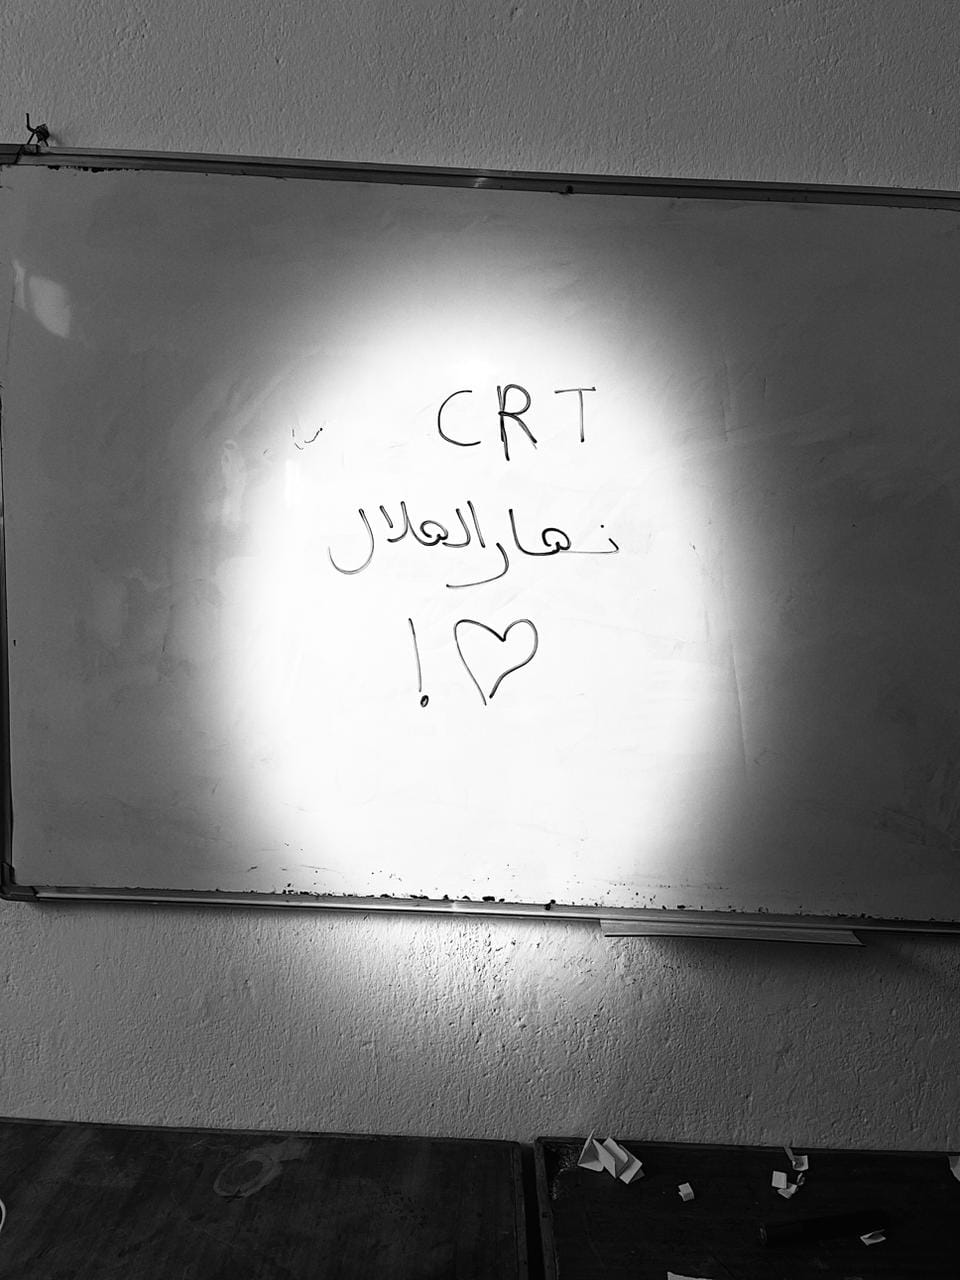 CRT
نهار الهلال
♡!